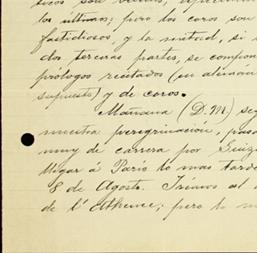 sicos son
los últimos; pero los coros son
fastidiosos y la mitad, si
dos terceras partes, se compone
prólogos recitados (en alemán
supuesto) y de coros.
Mañana (D.M.) seg
nuestra peregrinación, pasa
muy de carrera por Suiza
llegar á Paris lo mas tarde
8 de Agosto. Iremos al
de l'Athénée; pero lo m